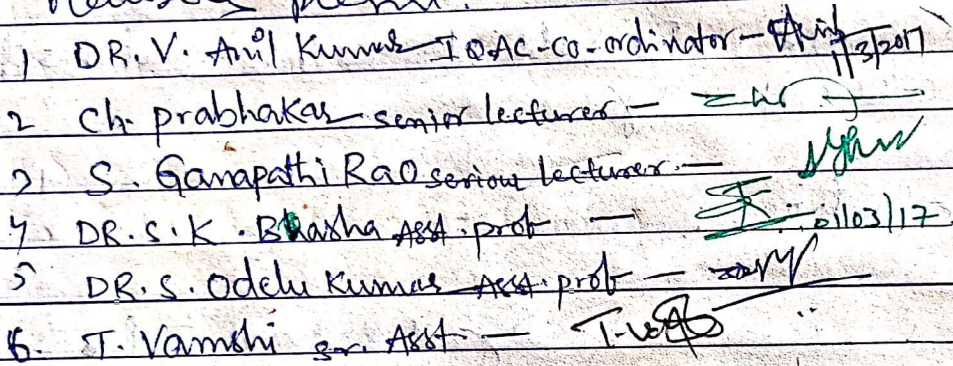 1 DR. V. Anil Kumar IQAC-co-ordinator - Anil 1/3/2017
2 Ch. prabhakar senior lecturer -
3 S. Ganapathi Rao seriour lecturer. -
4 DR. S. K. Bhasha Asst. prof - 01/03/17
5 DR. S. Odelu Kumar Asst. prof -
6. T. Vamshi sr. Asst -